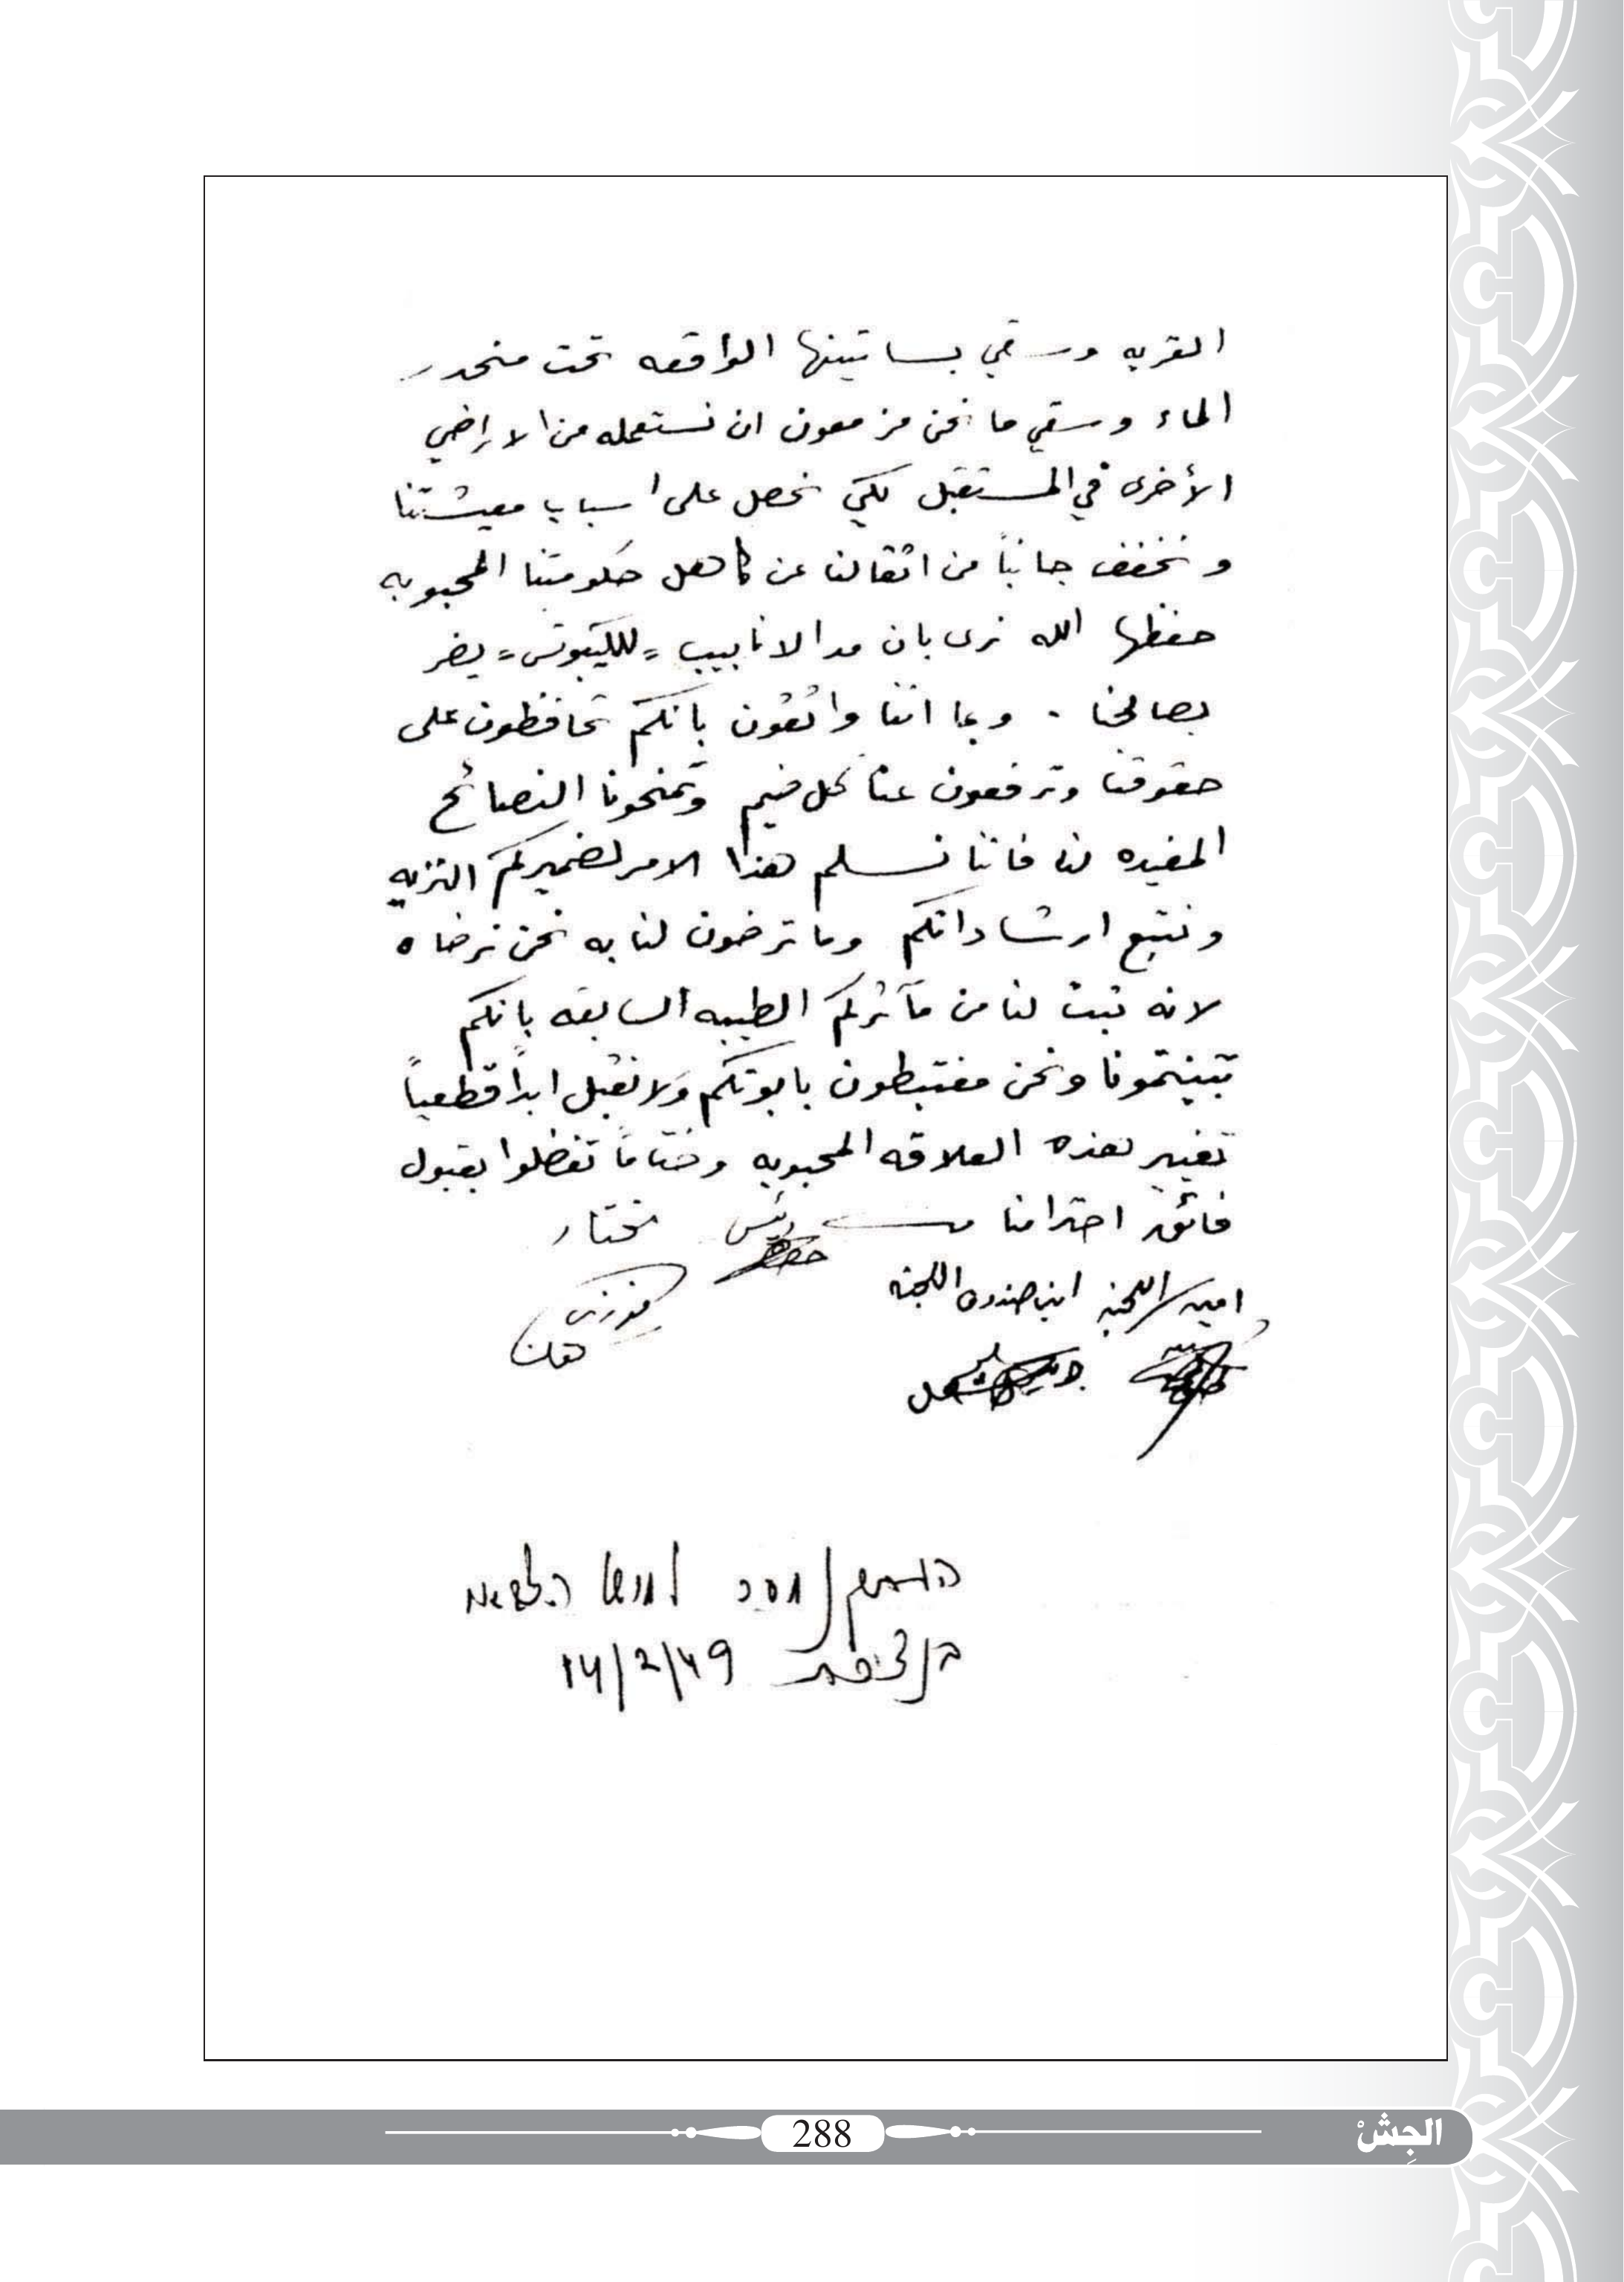 القريه وسقي بساتينها الواقعه تحت منحدر
الماء وسقي ما نحن مزمعون ان نستعمله من الاراضي
الأخرى في المستقبل لكي نحصل على اسباب معيشتنا
ونخفف جانباً من اثقالنا عن كاهل حكومتنا المحبوبه
حفظها الله نرى بان مد الانابيب = للكيبوتس = يضر
بصالحنا . وبما اننا واثقون بانكم تحافظون على
حقوقنا وترفعون عنا كل ضيم وتمنحونا النصائح
المفيده لنا فاننا نسلم هذا الامر لضميركم النزيه
ونتبع ارشاداتكم وما ترضون لنا به نحن نرضاه
لانه ثبت لنا من مآثركم الطيبه السابقه بانكم
تبنيتمونا ونحن مغتبطون بابوتكم ولا نقبل ابداً قطعياً
تغيير هذه العلاقه المحبوبه وختاماً تفضلوا بقبول
فائق احترامنا
رئيس مختار
امين سر اللجنه امين صندوق اللجنه
فوزي
14/2/49
288
الجِشْ